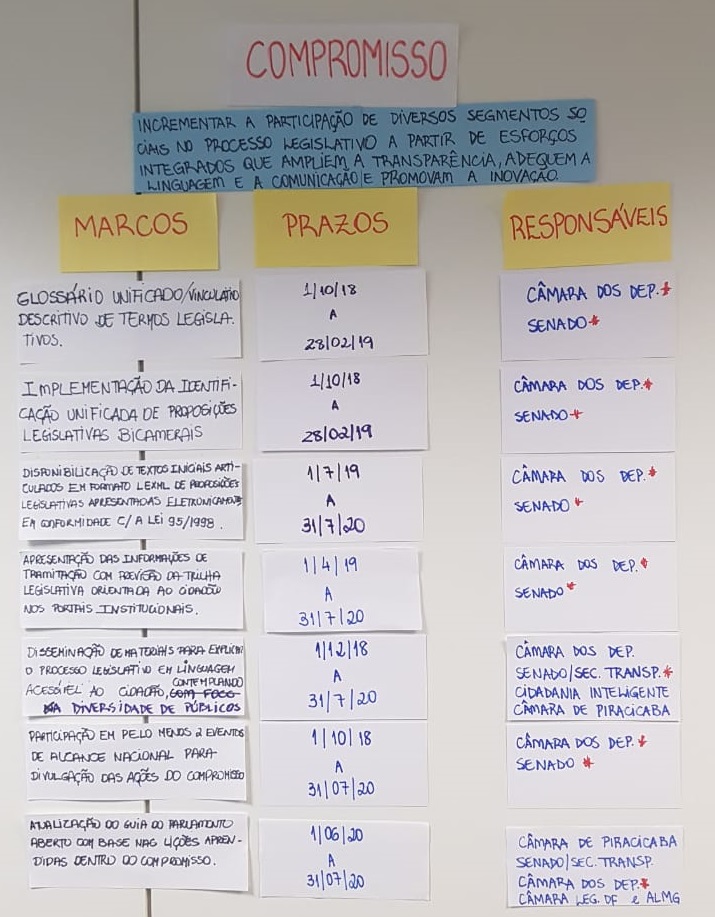 COMPROMISSO
INCREMENTAR A PARTICIPAÇÃO DE DIVERSOS SEGMENTOS SO
CIAIS NO PROCESSO LEGISLATIVO A PARTIR DE ESFORÇOS
INTEGRADOS QUE AMPLIEM A TRANSPARÊNCIA, ADEQUEM A
LINGUAGEM E A COMUNICAÇÃO E PROMOVAM A INOVAÇÃO.
MARCOS
PRAZOS
RESPONSÁVEIS
GLOSSÁRIO UNIFICADO/VINCULATIVO
DESCRITIVO DE TERMOS LEGISLA-
TIVOS.
1/10/18
A
28/02/19
CÂMARA DOS DEP.*
SENADO*
IMPLEMENTAÇÃO DA IDENTIFI-
CAÇÃO UNIFICADA DE PROPOSIÇÕES
LEGISLATIVAS BICAMERAIS
1/10/18
A
28/02/19
CÂMARA DOS DEP.*
SENADO*
DISPONIBILIZAÇÃO DE TEXTOS INICIAIS ARTI-
CULADOS EM FORMATO LEXML DE PROPOSIÇÕES
LEGISLATIVAS APRESENTADAS ELETRONICAMENTE
EM CONFORMIDADE C/ A LEI 95/1998.
1/7/19
A
31/7/20
CÂMARA DOS DEP.*
SENADO*
APRESENTAÇÃO DAS INFORMAÇÕES DE
TRAMITAÇÃO COM PREVISÃO DA TRILHA
LEGISLATIVA ORIENTADA AO CIDADÃO
NOS PORTAIS INSTITUCIONAIS.
1/4/19
A
31/7/20
CÂMARA DOS DEP.*
SENADO*
DISSEMINAÇÃO DE MATERIAIS PARA EXPLICAR
O PROCESSO LEGISLATIVO EM LINGUAGEM
CONTEMPLANDO
ACESSÍVEL AO CIDADÃO, COM FOCO
NA DIVERSIDADE DE PÚBLICOS
1/12/18
A
31/7/20
CÂMARA DOS DEP.
SENADO/SEC. TRANSP.*
CIDADANIA INTELIGENTE
CÂMARA DE PIRACICABA
PARTICIPAÇÃO EM PELO MENOS 2 EVENTOS
DE ALCANCE NACIONAL PARA
DIVULGAÇÃO DAS AÇÕES DO COMPROMISSO
1/10/18
A
31/07/20
CÂMARA DOS DEP.*
SENADO*
ATUALIZAÇÃO DO GUIA DO PARLAMENTO
ABERTO COM BASE NAS LIÇÕES APREN-
DIDAS DENTRO DO COMPROMISSO.
1/06/20
A
31/07/20
CÂMARA DE PIRACICABA
SENADO/SEC. TRANSP.
CÂMARA DOS DEP.*
CÂMARA LEG. DF e ALMG